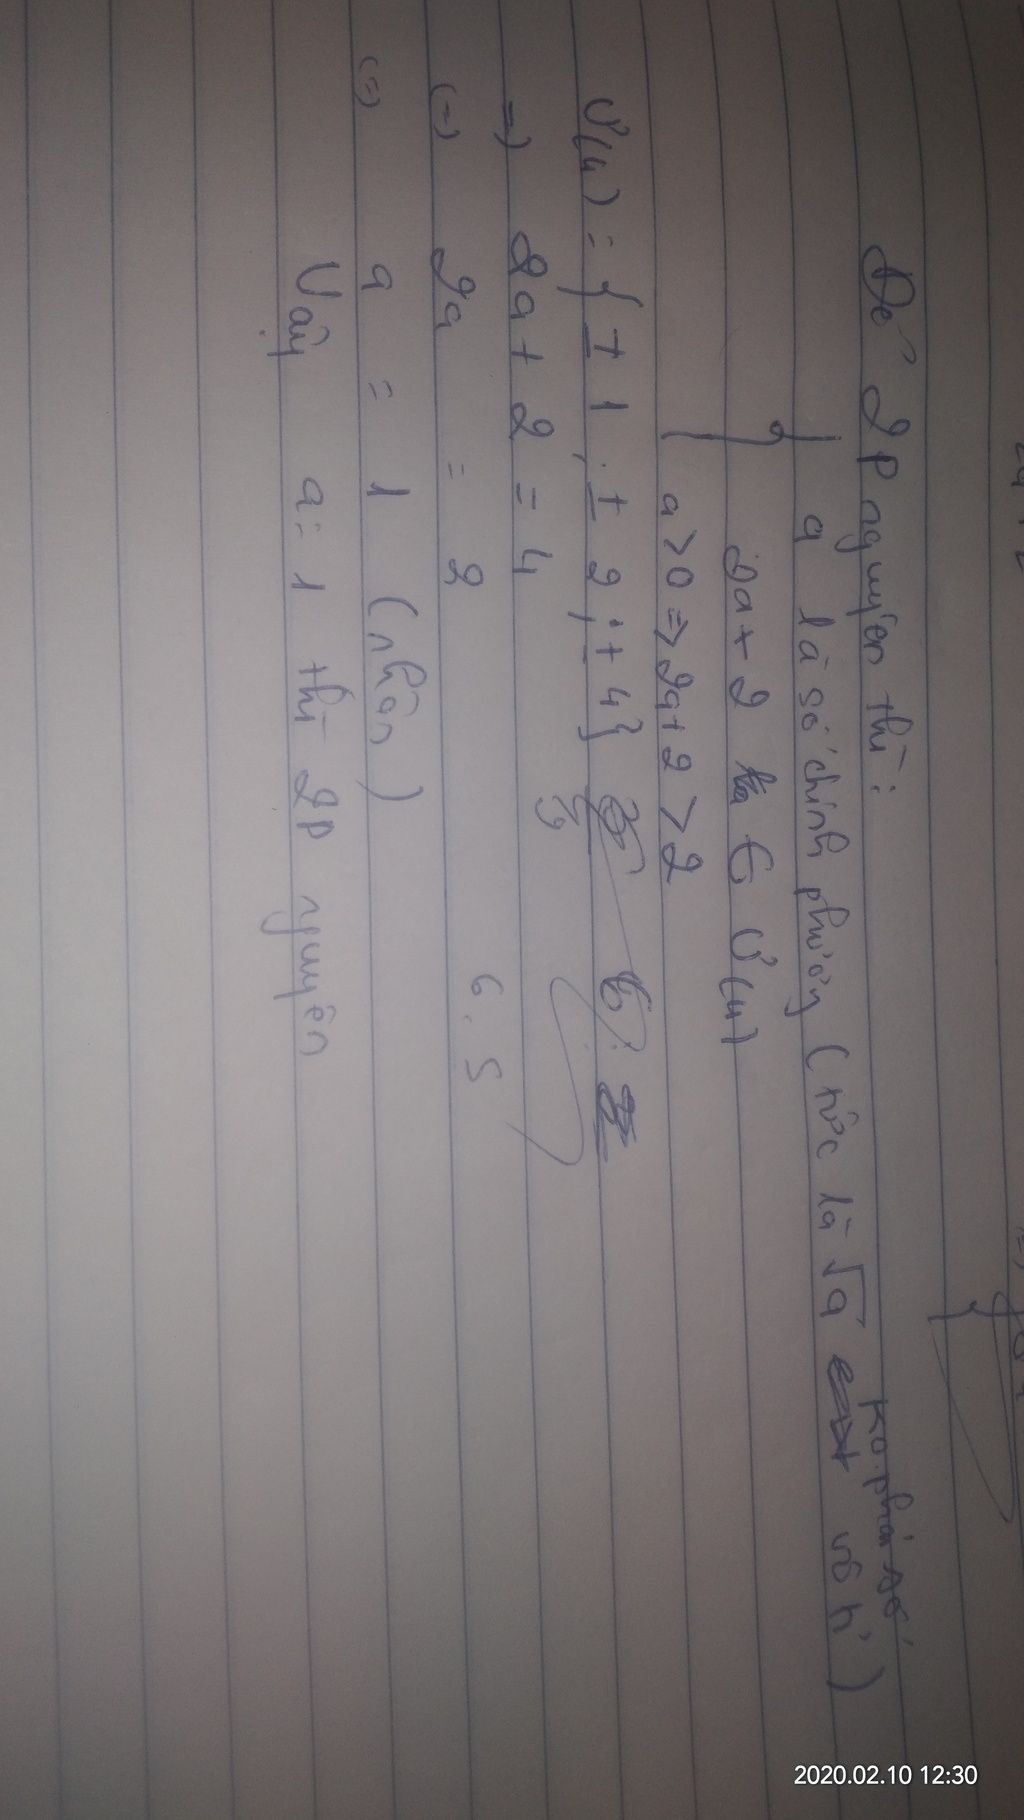 Để 2P nguyên thì:
a là số chính phương (tức là √a ko phải số vô tỉ)
2a+2 ∈ Ư(4)
a>0 => 2a+2 >2
Ư(4) = {±1; ±2; ±4}
=> 2a+2 = 4
(=) 2a = 2
6.5
(=) a = 1 (nhận)
Vậy a=1 thì 2P nguyên
2020.02.10 12:30